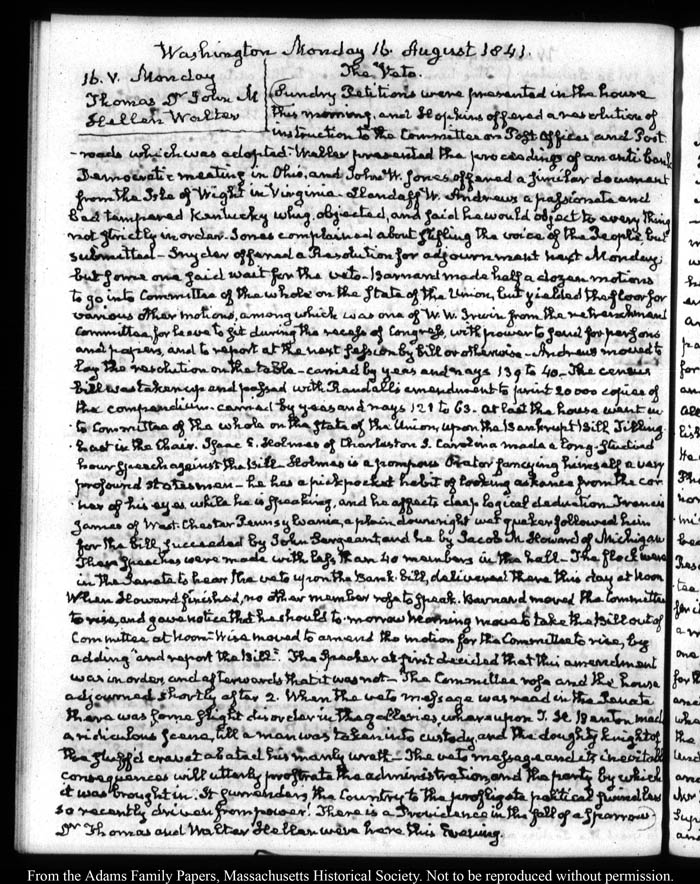 Washington Monday 16. August 1841.
16. V. Monday
Thomas Dr John M
Hellen Walter
The Veto.
Sundry Petitions were presented in the house
this morning, and Hopkins offered a resolution of
instruction to the Committee on Post Offices and Post
-roads which was adopted. Weller presented the proceedings of an anti bank
Democratic meeting in Ohio, and John W. Jones offered a similar document
from the Isle of Wight in Virginia. Landaff W. Andrews a passionate and
bad tempered Kentucky whig, objected, and said he would object to every thing
not strictly in order. Jones complained about stifling the voice of the People but
submitted – Snyder offered a Resolution for adjournment next Monday;
but some one said wait for the veto – Barnard made half a dozen motions
to go into Committee of the whole on the State of the Union, but yielded the floor for
various other motions, among which was one of W. W. Irwin from the retrenchment
Committee, for leave to sit during the recess of Congress, with power to send for persons
and papers, and to report at the next session by bill or otherwise – Andrews moved to
lay the resolution on the table – carried by yeas and nays 139 to 40 – The census
bill was taken up and passed with Randall's amendment to print 20000 copies of
the compendium – carried by yeas and nays 121 to 63. At last the house went in
to Committee of the whole on the State of the Union, upon the Bankrupt Bill Tilling
hast in the Chair. Isaac E. Holmes of Charleston S. Carolina made a long-studied
hour speech against the Bill – Holmes is a pompous Orator fancying himself a very
profound statesman – he has a pickpocket habit of looking askance from the cor
ner of his eyes while he is speaking, and he affects deep logical deduction. Francis
James of West-Chester Pennsylvania, a plain downright wet quaker followed him
for the bill, succeeded by John Sergeant and he by Jacob M. Howard of Michigan
These speeches were made with less than 40 members in the hall – The flock were
in the Senate to hear the veto upon the Bank bill, delivered there this day at Noon
When Howard finished, no other member rose to speak. Barnard moved the Committee
to rise, and gave notice that he should to-morrow morning move to take the Bill out of
Committee at Noon – Wise moved to amend the motion for the Committee to rise, by
adding "and report the Bill". The Speaker at first decided that this amendment
was in order, and afterwards that it was not – The Committee rose and the house
adjourned shortly after 2. When the veto message was read in the Senate
there was some slight disorder in the galleries, whereupon T. H. Benton made
a ridiculous scene, till a man was taken into custody, and the doughty knight of
the stuff'd cravat abated his manly wrath – The veto message and its inevitable
consequences will utterly prostrate the administration, and the party by which
it was brought in. It surrenders the Country to the profligate political swindlers
so recently driven from power! There is a Providence in the fall of a sparrow
Dr Thomas and Walter Hellen were here this Evening.
From the Adams Family Papers, Massachusetts Historical Society. Not to be reproduced without permission.